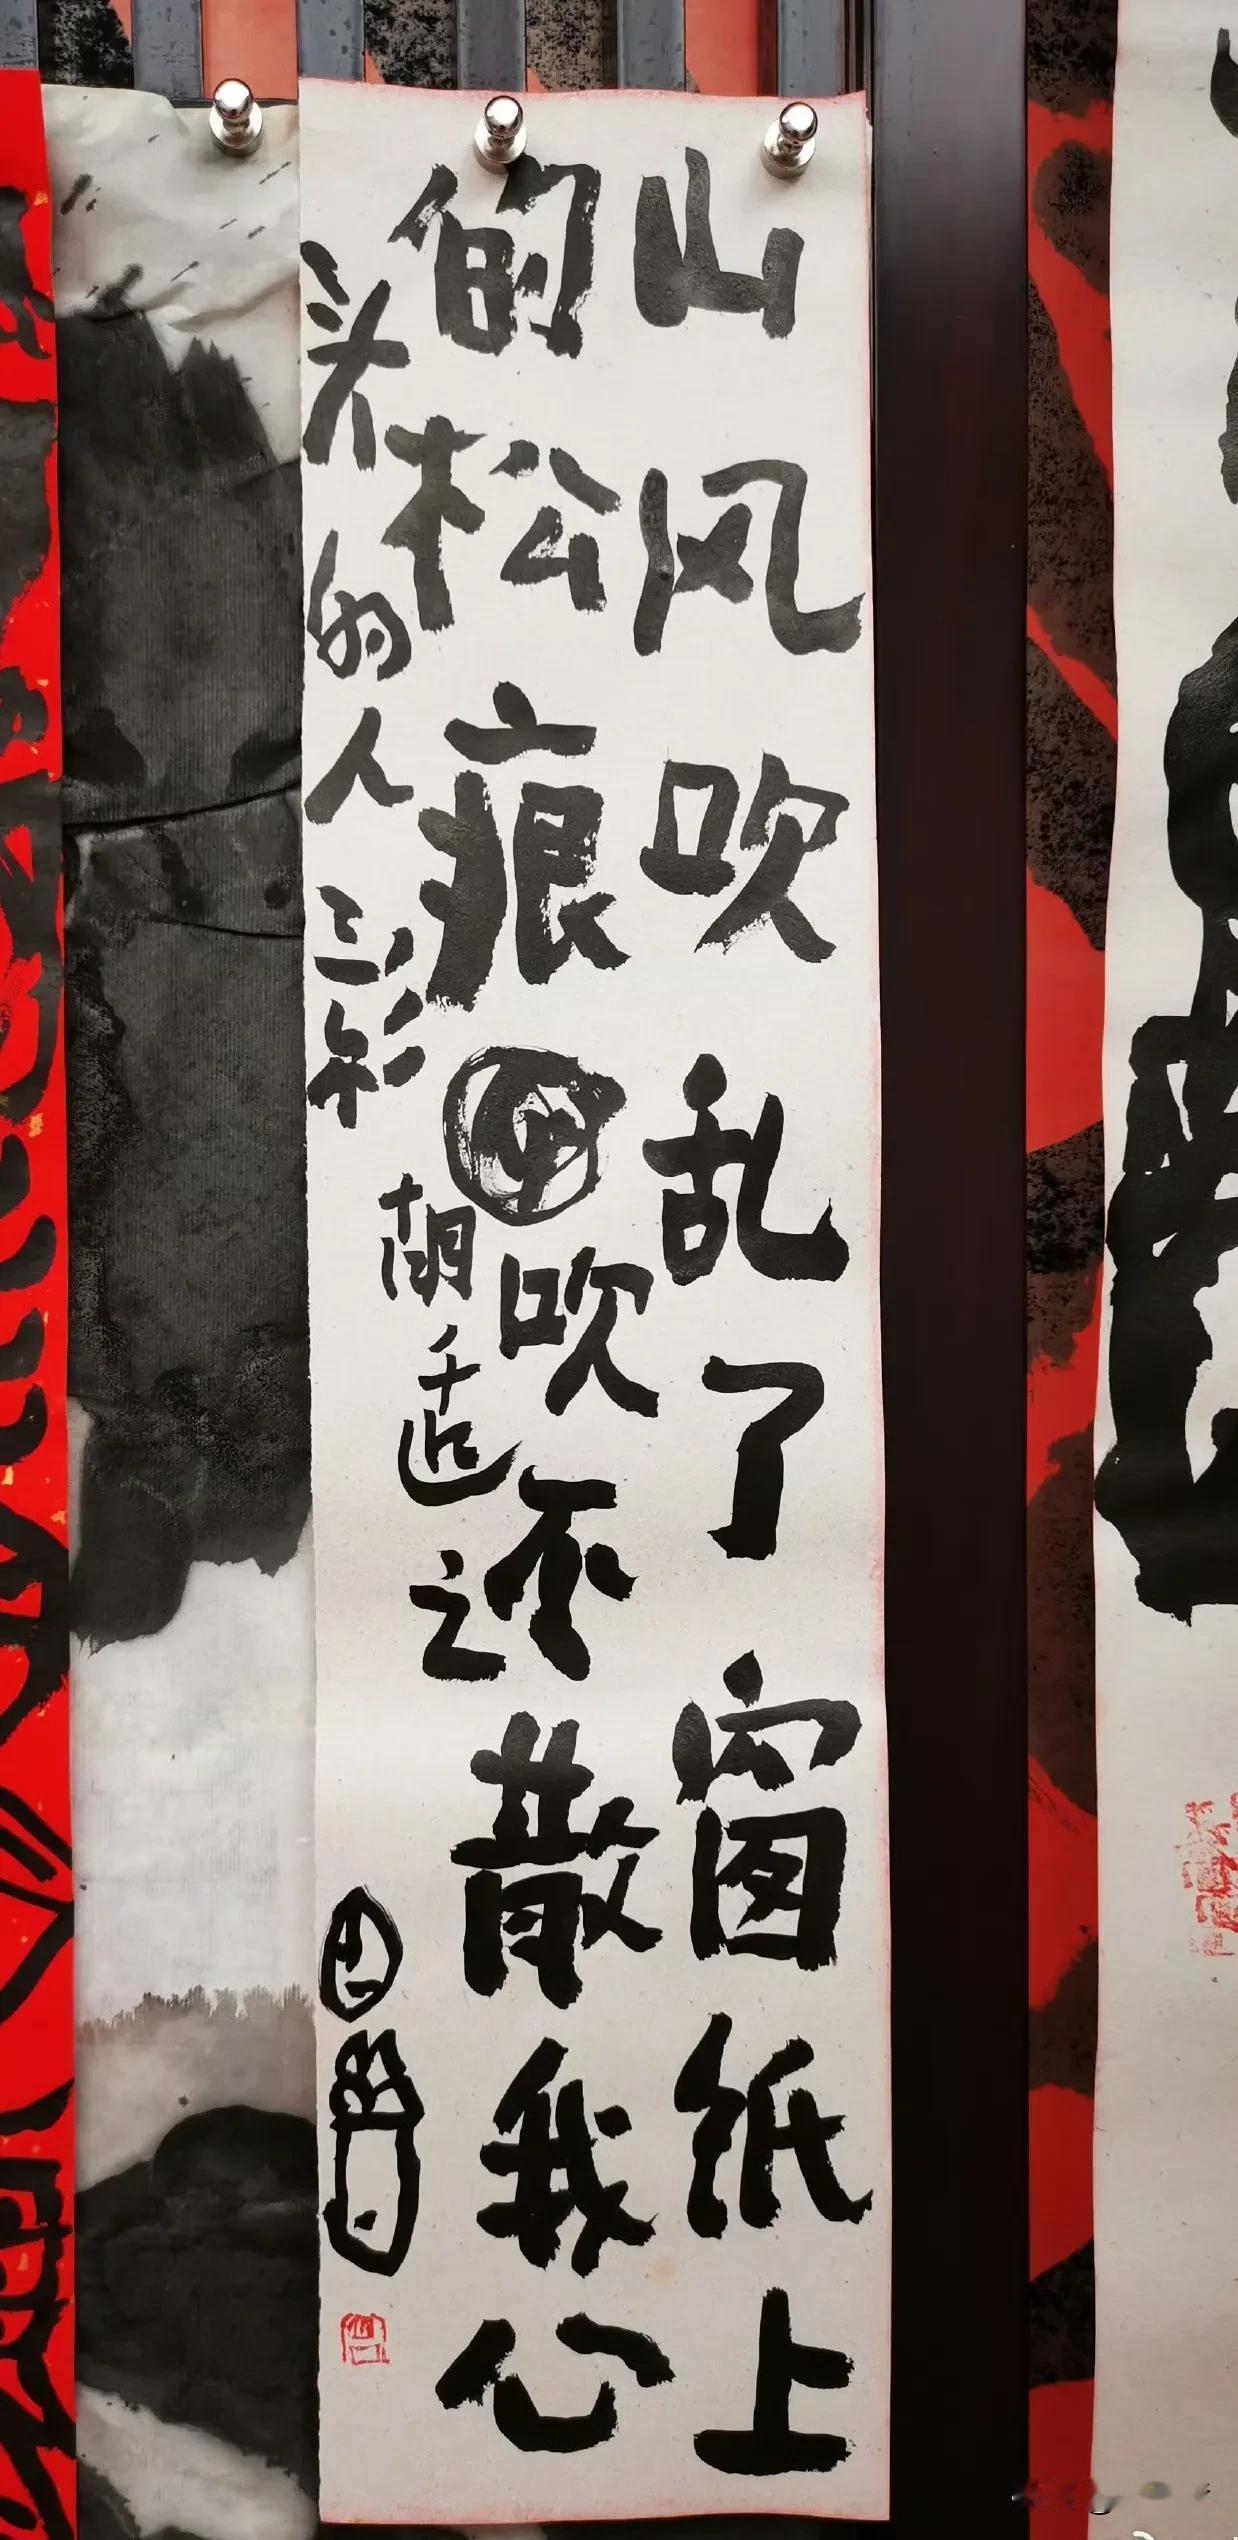 山风吹乱了窗纸上
的松痕吹不散我心
头的人影
胡适之